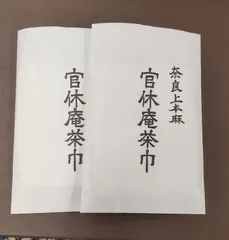 奈良上本麻
官休庵茶巾
官休庵茶巾